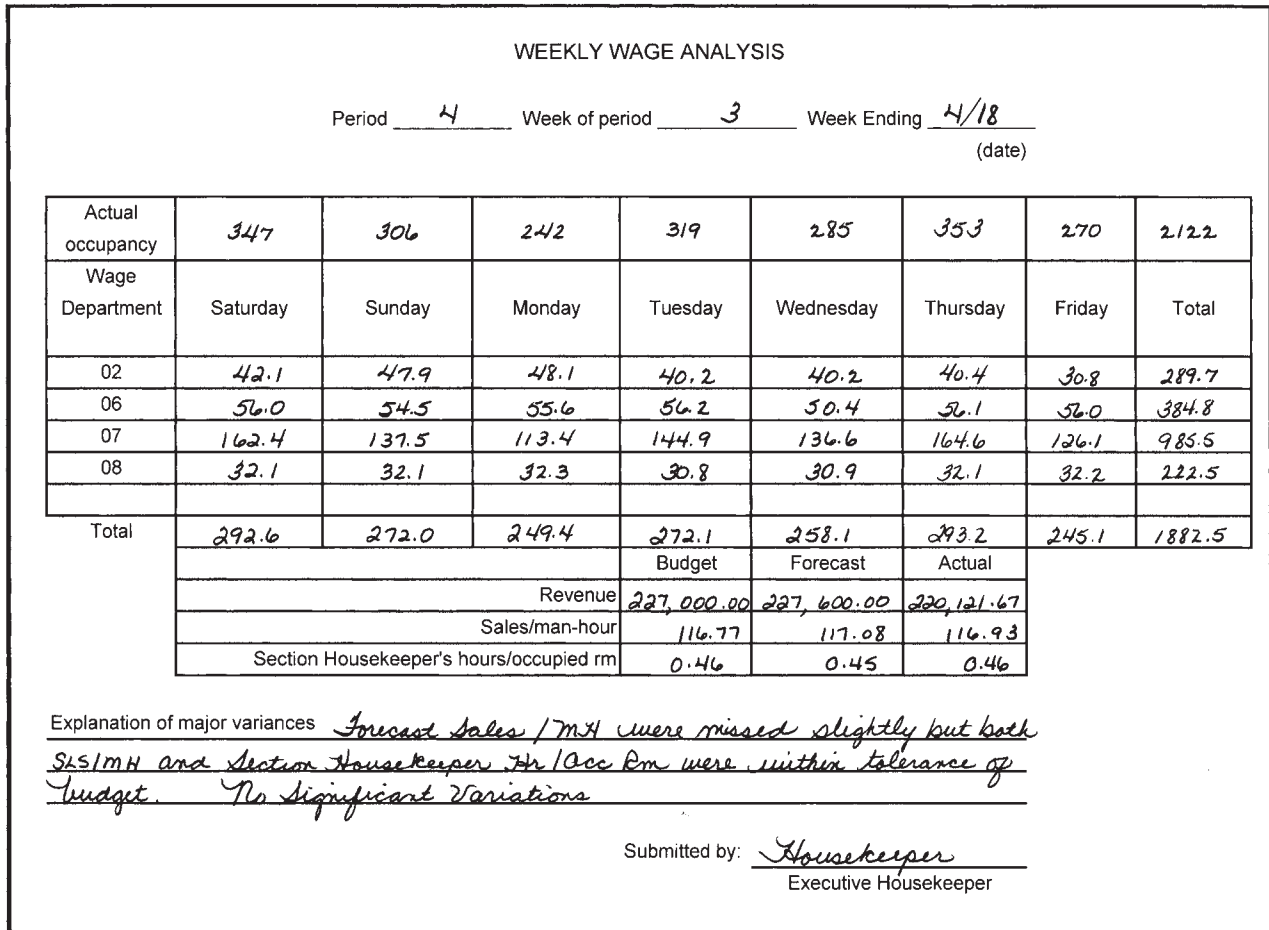 WEEKLY WAGE ANALYSIS
Period 4 Week of period 3 Week Ending 4/18
(date)
Actual occupancy 347 306 242 319 285 353 270 2122
Wage Department Saturday Sunday Monday Tuesday Wednesday Thursday Friday Total
02 42.1 47.9 48.1 40.2 40.2 40.4 30.8 289.7
06 56.0 54.5 55.6 56.2 50.4 56.1 56.0 384.8
07 162.4 137.5 113.4 144.9 136.6 164.6 126.1 985.5
08 32.1 32.1 32.3 30.8 30.9 32.1 32.2 222.5
Total 292.6 272.0 249.4 272.1 258.1 293.2 245.1 1882.5
Budget Forecast Actual
Revenue 227,000.00 227,600.00 220,121.67
Sales/man-hour 116.77 117.08 116.93
Section Housekeeper's hours/occupied rm 0.46 0.45 0.46
Explanation of major variances Forecast Sales/MH were missed slightly but both
SLS/MH and Section Housekeeper Hr/Occ Rm were within tolerance of
budget. No Significant Variations
Submitted by: Housekeeper
Executive Housekeeper